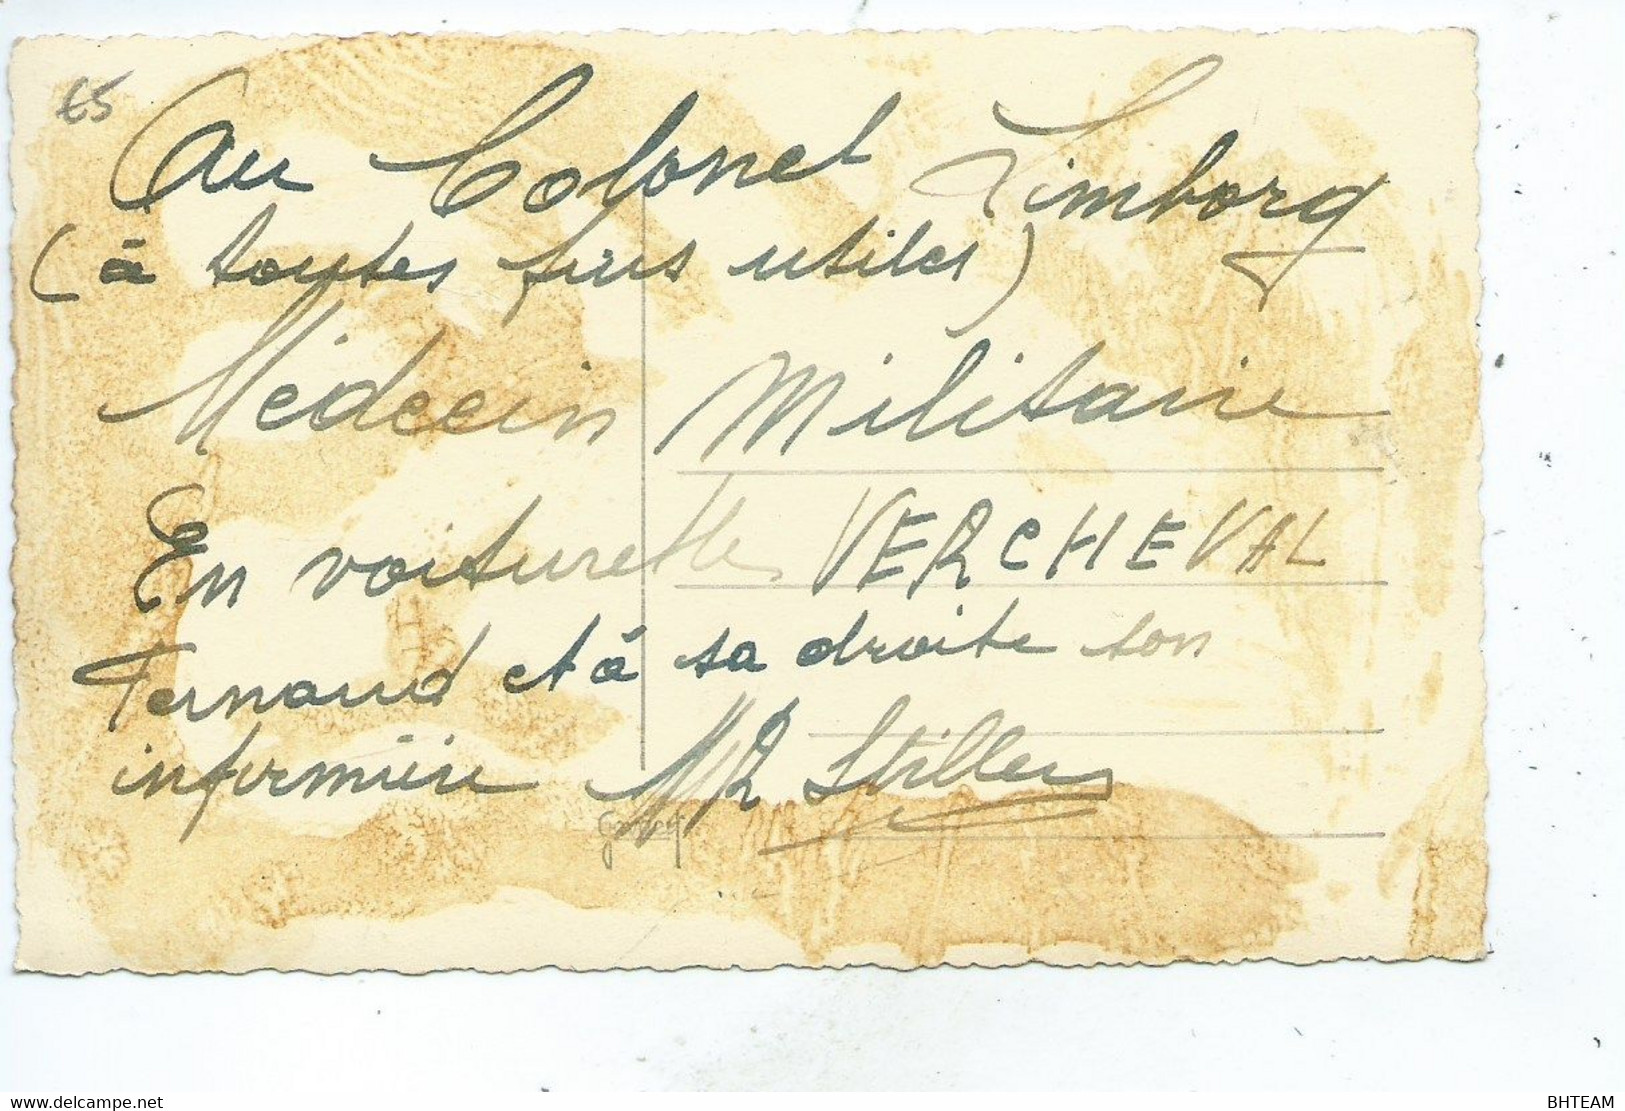 €5
Au Colonel Limborg
(à toutes fins utiles)
Médecin Militaire
En voiturette VERCHEVAL
Fernand et à sa droite son
infirmière MR Stillen
BHTEAM